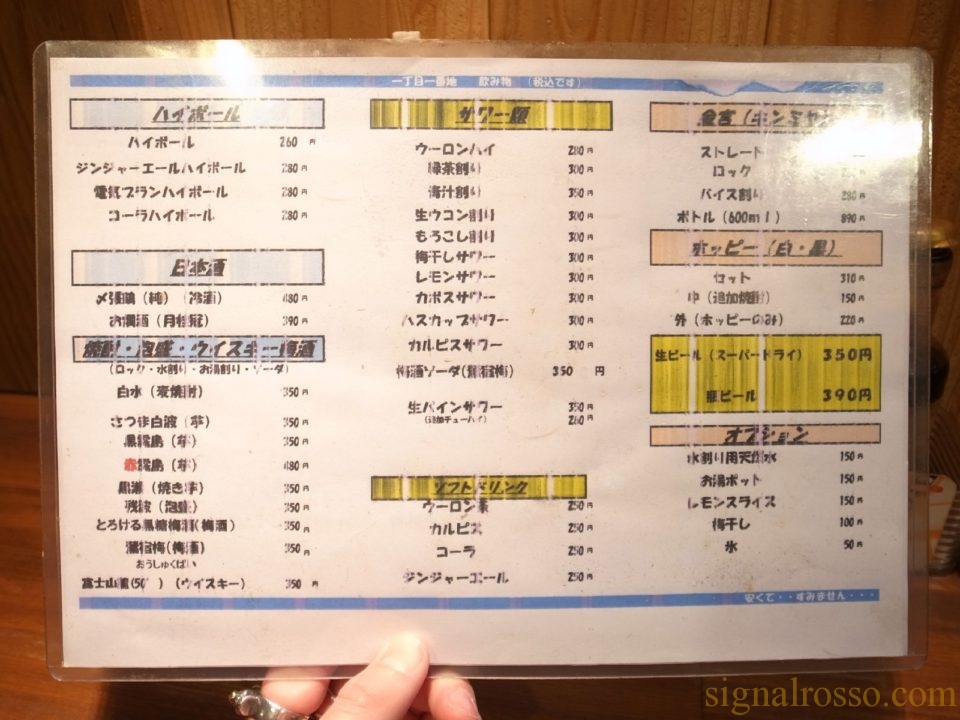 一丁目一番地 飲み物 (税込です)
ハイボール
ハイボール 260円
ジンジャーエールハイボール 280円
電気ブランハイボール 280円
コーラハイボール 280円
日本酒
〆張鶴(純)(冷酒) 480円
お燗酒(月桂冠) 390円
焼酎・泡盛・ウイスキー・梅酒
(ロック・水割り・お湯割り・ソーダ)
白水(麦焼酎) 350円
さつま白波(芋) 350円
黒霧島(芋) 350円
赤霧島(芋) 480円
黒瀬(焼き芋) 350円
残波(泡盛) 350円
とろける黒糖梅酒(梅酒) 350円
鶯宿梅(梅酒) 350円
おうしゅくばい
富士山麓(50゜)(ウイスキー) 350円
サワー類
ウーロンハイ 280円
緑茶割り 300円
青汁割り 350円
生ウコン割り 300円
もろこし割り 300円
梅干しサワー 300円
レモンサワー 300円
カボスサワー 300円
ハスカップサワー 300円
カルピスサワー 300円
梅酒ソーダ(鶯宿梅) 350円
生パインサワー 350円
(追加チューハイ) 260円
ソフトドリンク
ウーロン茶 250円
カルピス 250円
コーラ 250円
ジンジャーエール 250円
金宮(キンミヤ
ストレート
ロック
バイス割り 280円
ボトル(600ml) 890円
ホッピー(白・黒)
セット 310円
中(追加焼酎) 150円
外(ホッピーのみ) 220円
生ビール(スーパードライ) 350円
瓶ビール 390円
オプション
水割り用天然水 150円
お湯ポット 150円
レモンスライス 150円
梅干し 100円
氷 50円
安くて・・すみません・・・
signalrosso.com